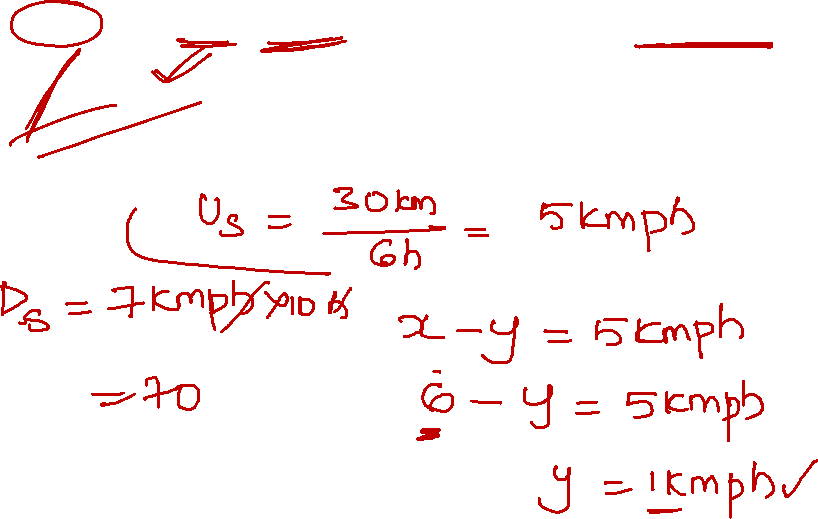 U_S = 30km / 6h = 5kmph
D_S = 7kmph × 10h
= 70
x - y = 5kmph
6 - y = 5kmph
y = 1kmph ✓